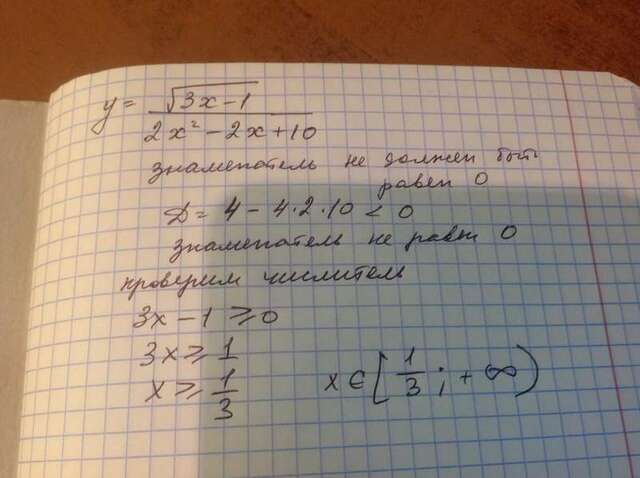 y = √(3x-1) / (2x² - 2x + 10)
знаменатель не должен быть
равен 0
Д = 4 - 4·2·10 < 0
знаменатель не равен 0
проверим числитель
3x - 1 ≥ 0
3x ≥ 1
x ≥ 1/3
x ∈ [1/3; +∞)